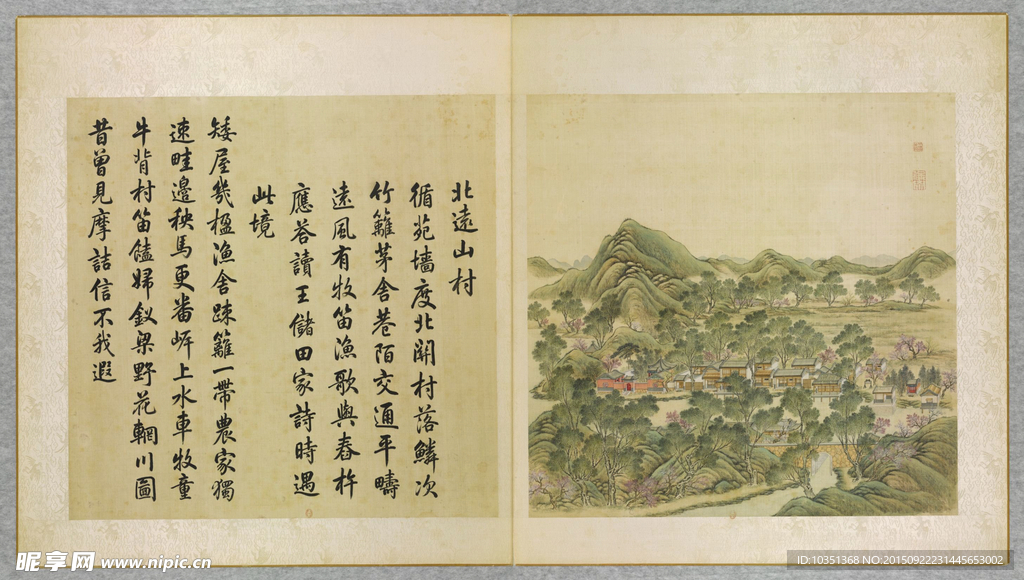 北遠山村
循苑墻度北關村落鱗次
竹籬茅舍巷陌交通平疇
遠風有牧笛漁歌與舂杵
應荅讀王儲田家詩時遇
此境
矮屋幾楹漁舍踈籬一帶農家獨
速畦邊秧馬更番岍上水車牧童
牛背村笛饁婦釵梁野花輞川圖
昔曾見摩詰信不我遐
昵享网 www.nipic.cn
ID:10351368 NO:20150922231445653002